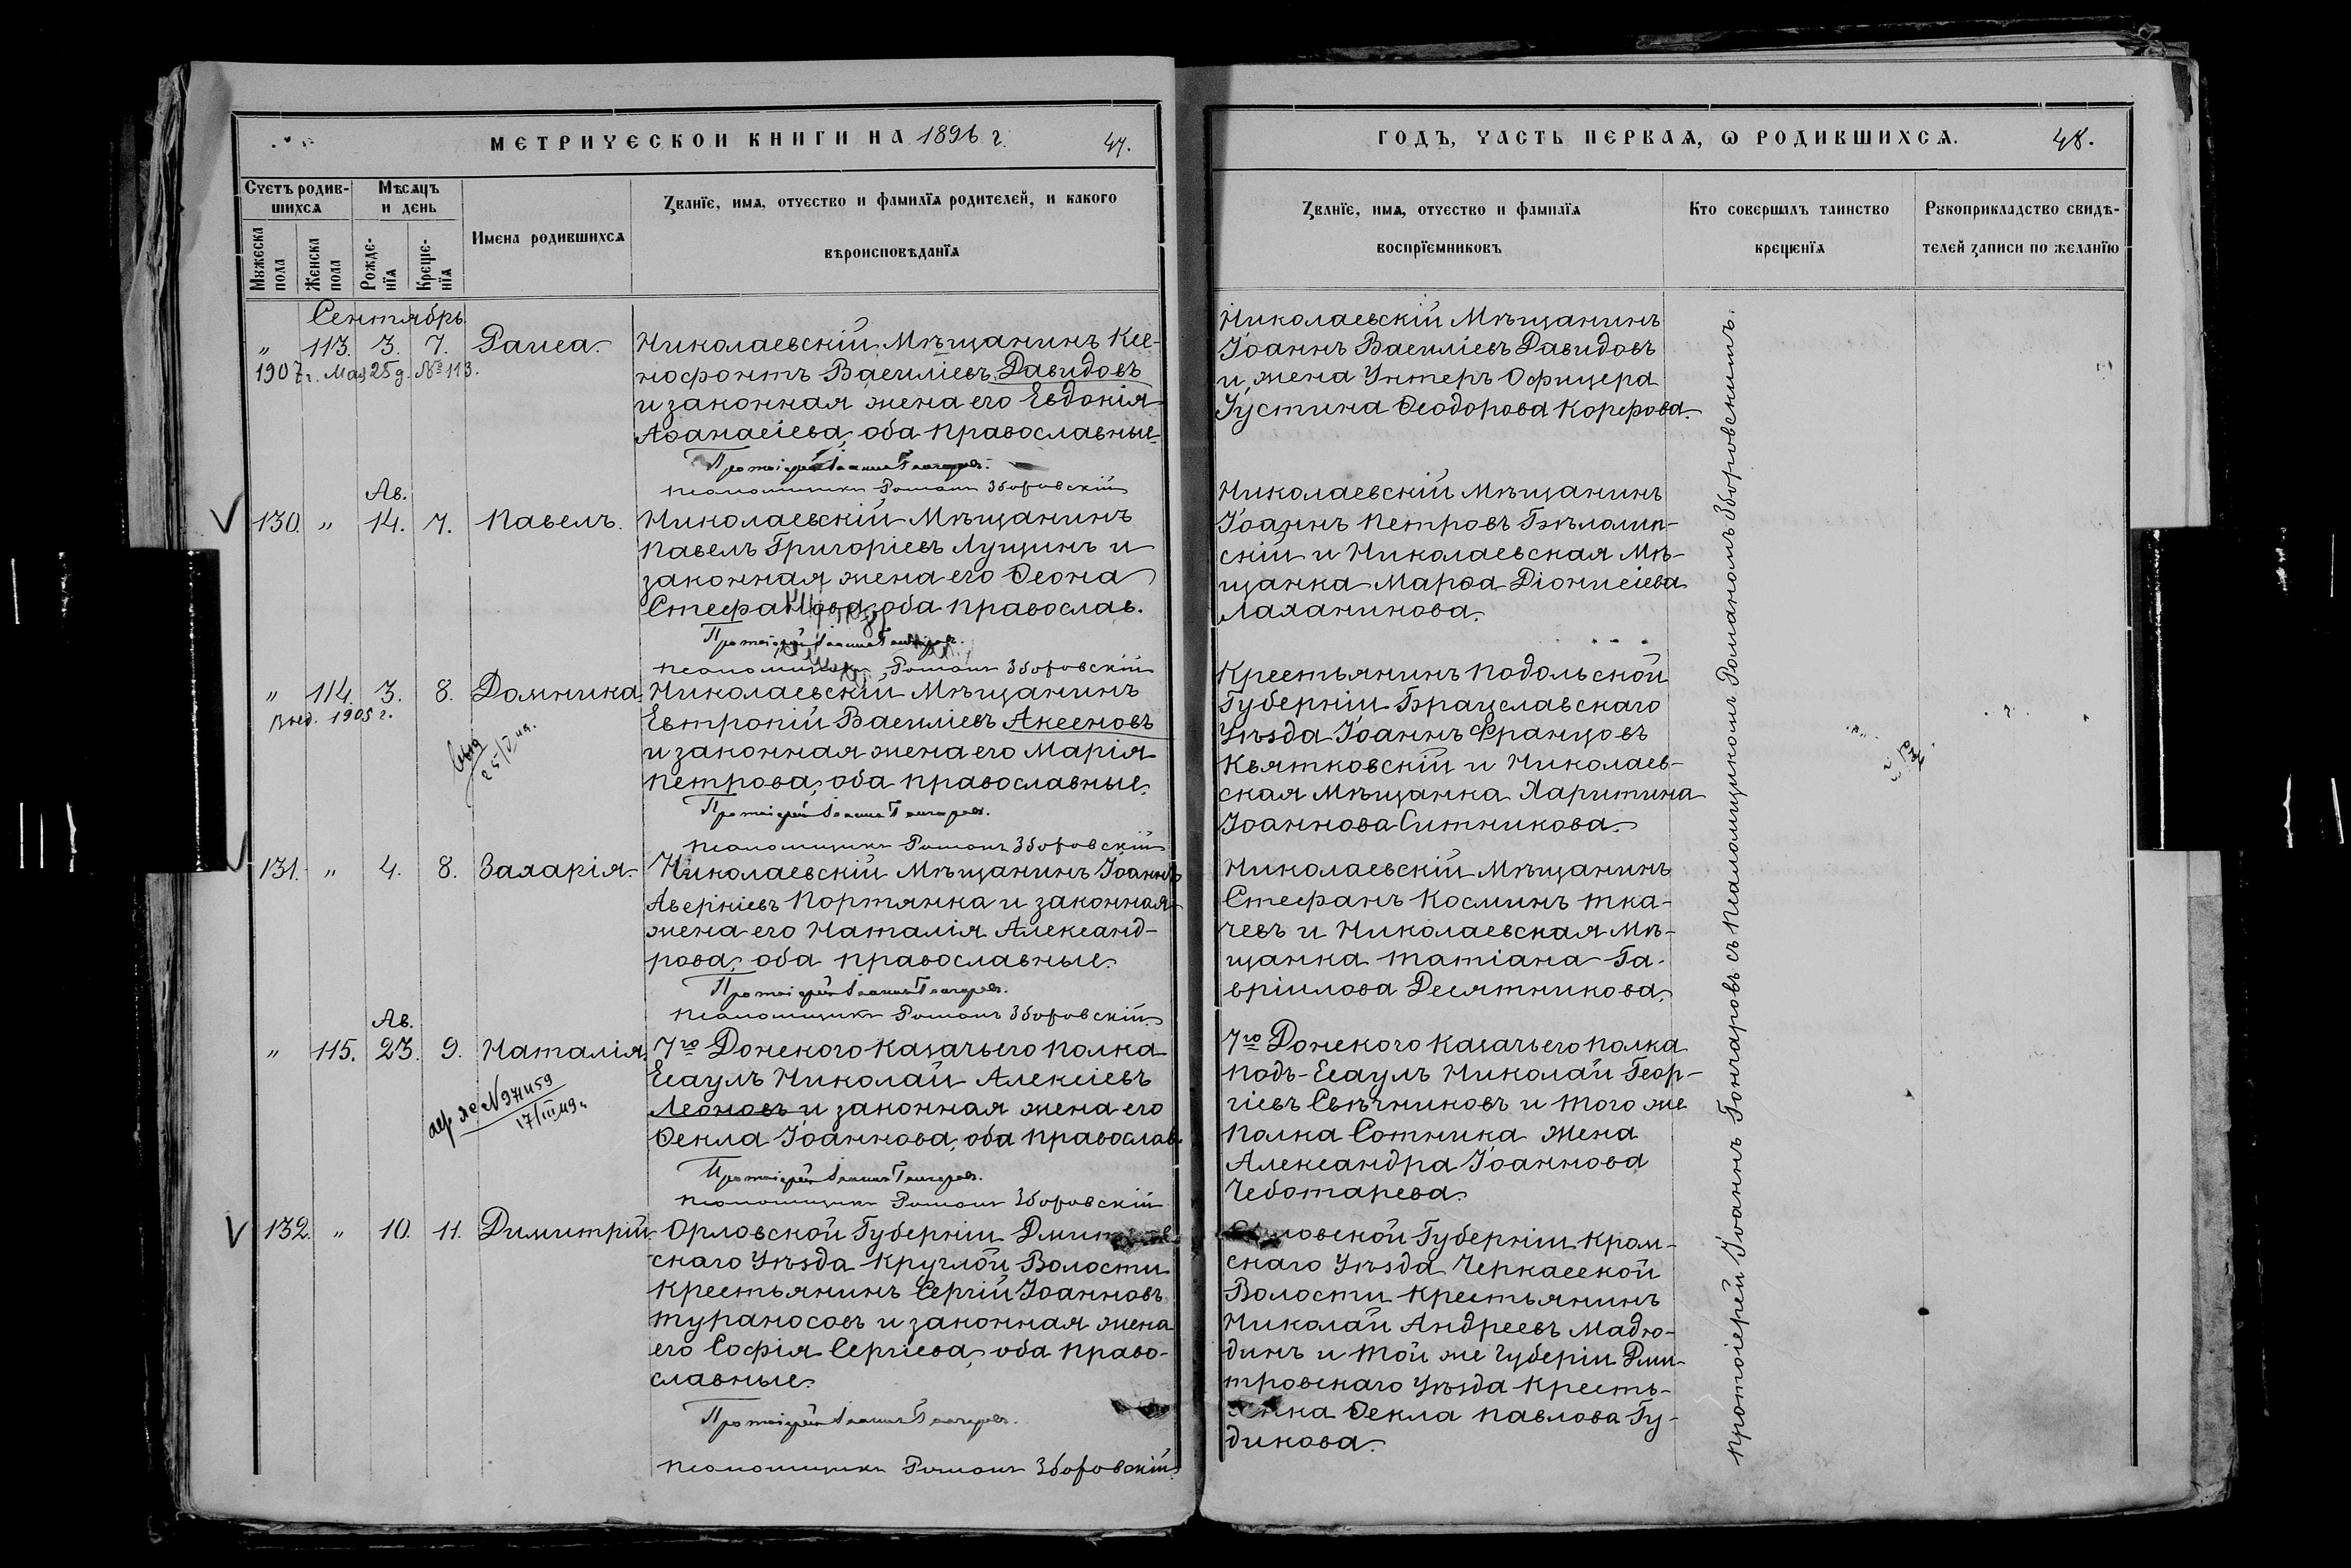 МЕТРИЧЕСКОИ КНИГИ НА 1896 г. 47.
Счетъ родив-
шихся
Мѣсяцъ
и день
Имена родившихся
Званїе, имя, отчество и фамилїя родителей, и какого
вѣроисповѣданїя
Мужеска
пола
Женска
пола
Рожде-
нїя
Креще-
нїя
Сентябрь.
„ 113. 3. 7. Раиса. Николаевскій Мѣщанинъ Ксе-
1907 г. Мая 25 д. № 113.
нофонтъ Василіевъ Давидовъ
и законная жена его Евдокія
Аѳанасіева, оба православные.
Протоіерей Іоаннъ Гончаровъ.
Псаломщикъ Романъ Зборовскій
Ав.
130. „ 14. 7. Павелъ. Николаевскій Мѣщанинъ
Павелъ Григоріевъ Лущинъ и
законная жена его Ѳеона
Стефанова, оба православ.
Протоіерей Іоаннъ Гончаровъ.
Псаломщикъ Романъ Зборовскій
„ 114. 3. 8. Домника. Николаевскій Мѣщанинъ
1905 г.
Евтропій Василіевъ Аксеновъ
и законная жена его Марія
Петрова, оба православные.
Протоіерей Іоаннъ Гончаровъ.
Псаломщикъ Романъ Зборовскій
131. „ 4. 8. Захарія. Николаевскій Мѣщанинъ Іоаннъ
Аверкіевъ Портянка и законная
жена его Наталія Александ-
рова, оба православные.
Протоіерей Іоаннъ Гончаровъ.
Псаломщикъ Романъ Зборовскій.
Ав.
„ 115. 23. 9. Наталія. 7го Донского Казачьего полка
Есаулъ Николай Алексіевъ
Леоновъ и законная жена его
Ѳекла Іоаннова, оба православ.
17/III 49 г.
Протоіерей Іоаннъ Гончаровъ.
Псаломщикъ Романъ Зборовскій
132. „ 10. 11. Димитрій Орловской Губерніи
скаго Уѣзда Круглой Волости
Крестьянинъ Сергій Іоанновъ
Тураносовъ и законная жена
его Софія Сергіева, оба право-
славные.
Протоіерей Іоаннъ Гончаровъ.
Псаломщикъ Романъ Зборовскій
ГОДЪ, ЧАСТЬ ПЕРВАЯ, Ѡ РОДИВШИХСЯ. 48.
Званїе, имя, отчество и фамилїя
воспрїемниковъ
Кто совершалъ таинство
крещенїя
Рукоприкладство свидѣ-
телей записи по желанїю
Николаевскій Мѣщанинъ
Іоаннъ Василіевъ Давидовъ
и жена Унтеръ Офицера
Іустина Ѳеодорова Корефова.
Николаевскій Мѣщанинъ
Іоаннъ Петровъ Бѣлолип-
скій и Николаевская Мѣ-
щанка Марѳа Діонисіева
Лаханинова.
Крестьянинъ Подольской
Губерніи Брацславскаго
Уѣзда Іоаннъ Францовъ
Квятковскій и Николаев-
ская Мѣщанка Харитина
Іоаннова Ситникова.
Николаевскій Мѣщанинъ
Стефанъ Косминъ Тка-
чевъ и Николаевская Мѣ-
щанка Татіана Га-
вріилова Десятникова.
7го Донского Казачьего полка
Подъ-Есаулъ Николай Геор-
гіевъ Свѣчниковъ и того же
полка Сотника жена
Александра Іоаннова
Чеботарева.
Орловской Губерніи Кром-
скаго Уѣзда Черкасской
Волости Крестьянинъ
Николай Андреевъ Мадю-
динъ и той же Губеріи Дми-
тровскаго Уѣзда Кресть-
янка Ѳекла Павлова Гу-
дикова.
Протоіерей Іоаннъ Гончаровъ съ Псаломщикомъ Романомъ Зборовскимъ.